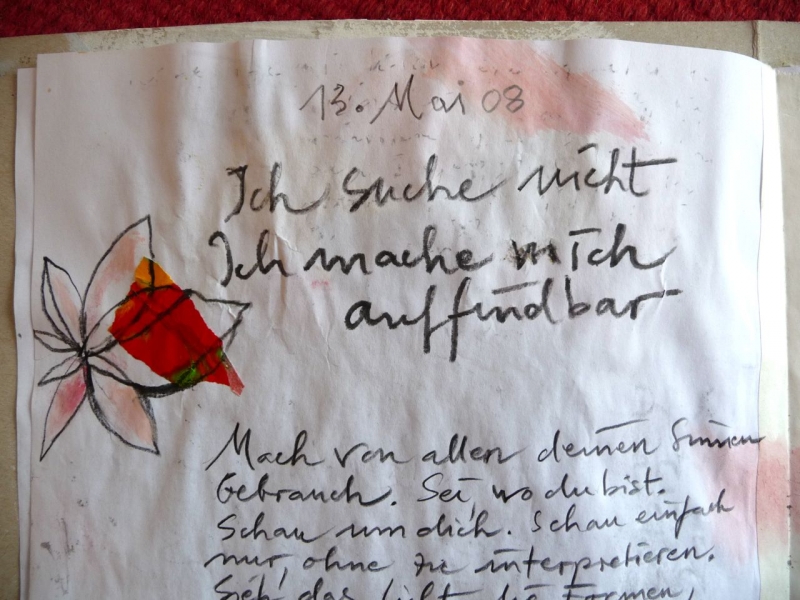 13. Mai 08
Ich suche nicht
Ich mache mich
auffindbar
Mach von allen deinen Sinnen
Gebrauch. Sei, wo du bist.
Schau um dich. Schau einfach
nur, ohne zu interpretieren.
Sieh das Licht, die Formen,